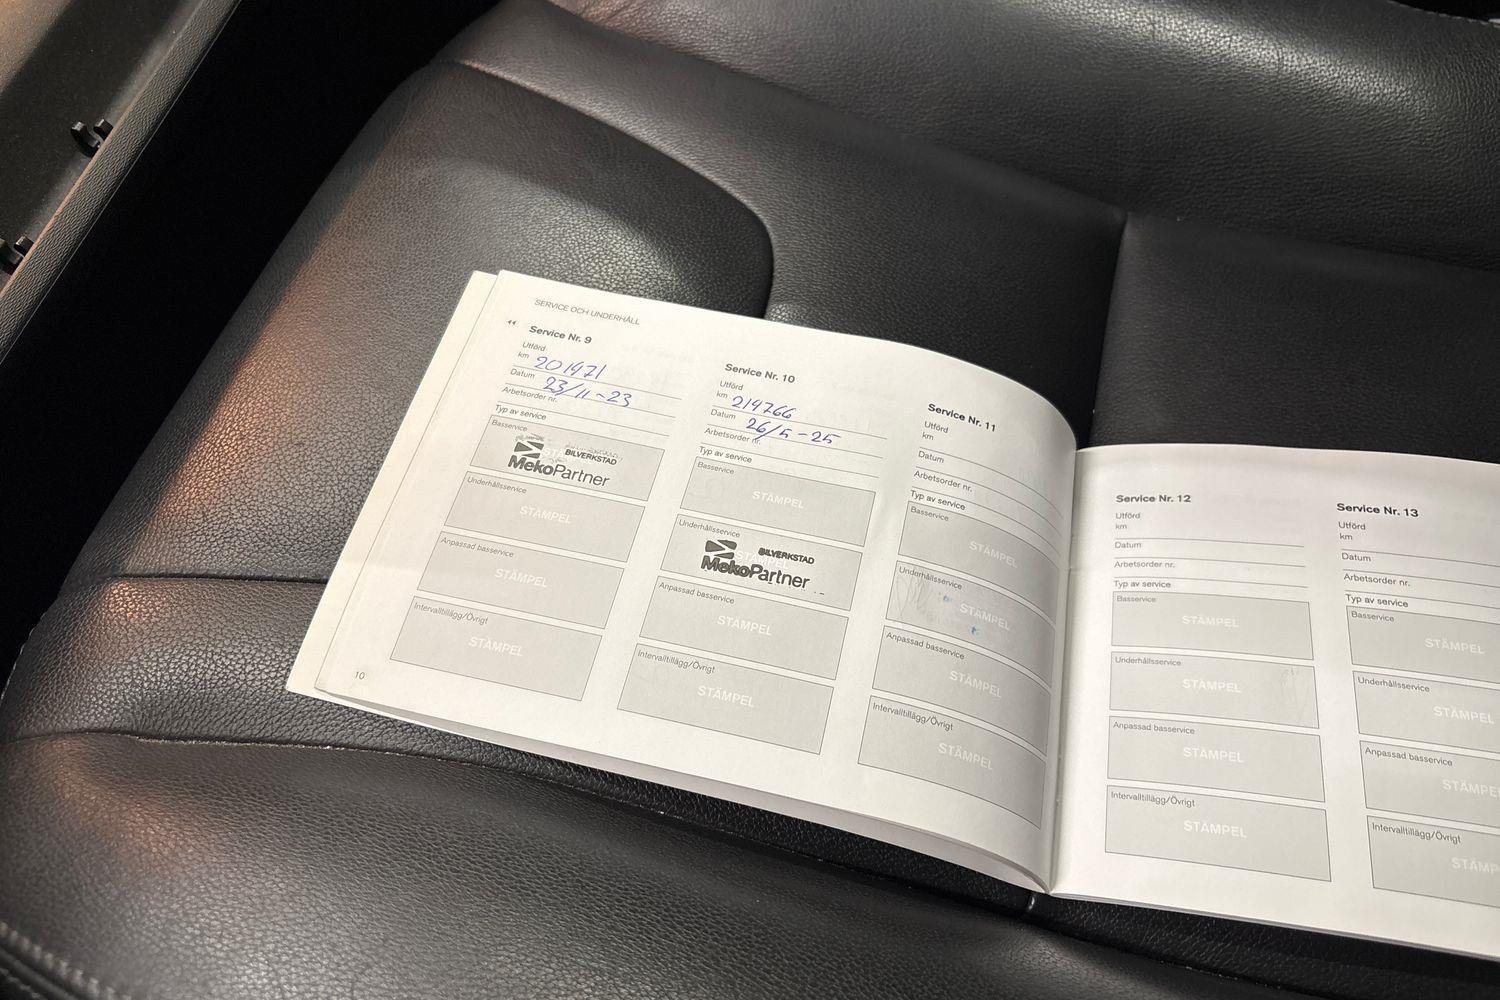 SERVICE OCH UNDERHÅLL
Service Nr. 9
Utförd
km 201471
Datum 23/11-23
Arbetsorder nr.
Typ av service
Basservice
BILVERKSTAD
MekoPartner
Underhållsservice
STÄMPEL
Anpassad basservice
STÄMPEL
Intervalltillägg/Övrigt
STÄMPEL
10
Service Nr. 10
Utförd
km 214766
Datum 26/5-25
Arbetsorder nr.
Typ av service
Basservice
STÄMPEL
Underhållsservice
BILVERKSTAD
MekoPartner
Anpassad basservice
STÄMPEL
Intervalltillägg/Övrigt
STÄMPEL
Service Nr. 11
Utförd
km
Datum
Arbetsorder nr.
Typ av service
Basservice
STÄMPEL
Underhållsservice
STÄMPEL
Anpassad basservice
STÄMPEL
Intervalltillägg/Övrigt
STÄMPEL
Service Nr. 12
Utförd
km
Datum
Arbetsorder nr.
Typ av service
Basservice
STÄMPEL
Underhållsservice
STÄMPEL
Anpassad basservice
STÄMPEL
Intervalltillägg/Övrigt
STÄMPEL
Service Nr. 13
Utförd
km
Datum
Arbetsorder nr.
Typ av service
Basservice
STÄMPEL
Underhållsservice
STÄMPEL
Anpassad basservice
STÄMPE
Intervalltillägg/Övrigt
STÄMP